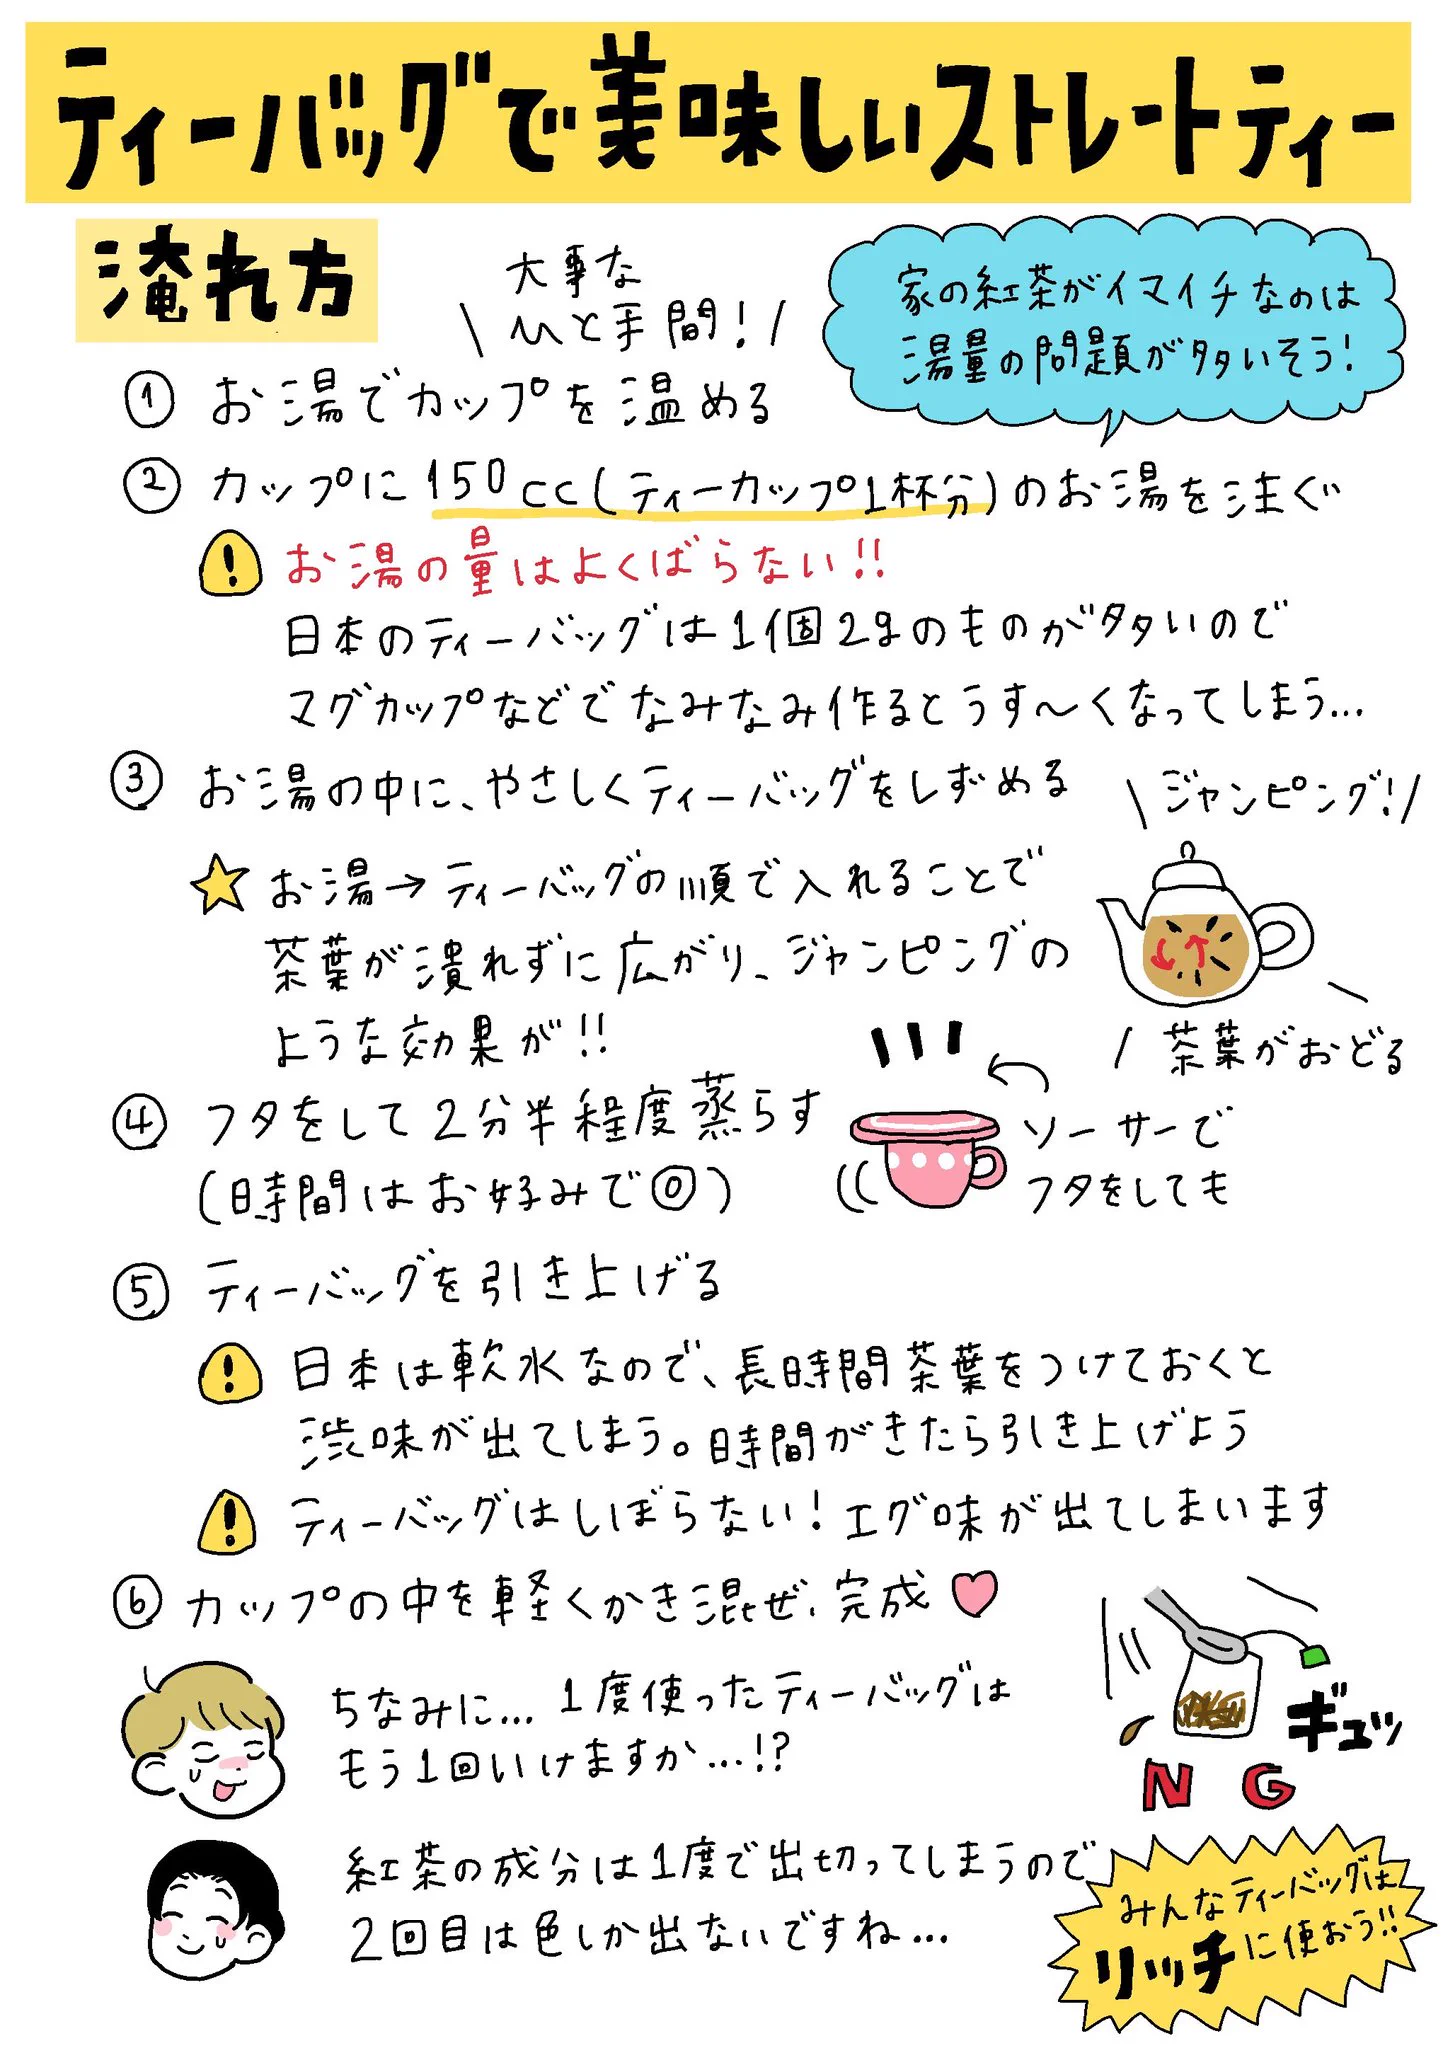 ティーバッグで美味しいストレートティー
淹れ方
大事な
ひと手間!
家の紅茶がイマイチなのは
湯量の問題が多いそう!
① お湯でカップを温める
② カップに150cc(ティーカップ1杯分)のお湯を注ぐ
! お湯の量はよくばらない!!
日本のティーバッグは1個2gのものが多いので
マグカップなどでなみなみ作るとうす〜くなってしまう...
③ お湯の中に、やさしくティーバッグをしずめる
ジャンピング!
★ お湯→ティーバッグの順で入れることで
茶葉が潰れずに広がり、ジャンピングの
ような効果が!!
茶葉がおどる
④ フタをして2分半程度蒸らす
(時間はお好みで◎)
ソーサーで
フタをしても
⑤ ティーバッグを引き上げる
! 日本は軟水なので、長時間茶葉をつけておくと
渋味が出てしまう。時間がきたら引き上げよう
! ティーバッグはしぼらない!エグ味が出てしまいます
⑥ カップの中を軽くかき混ぜ、完成♥
ギュッ
NG
ちなみに...1度使ったティーバッグは
もう1回いけますか...!?
紅茶の成分は1度で出切ってしまうので
2回目は色しか出ないですね...
みんなティーバッグは
リッチに使おう!!